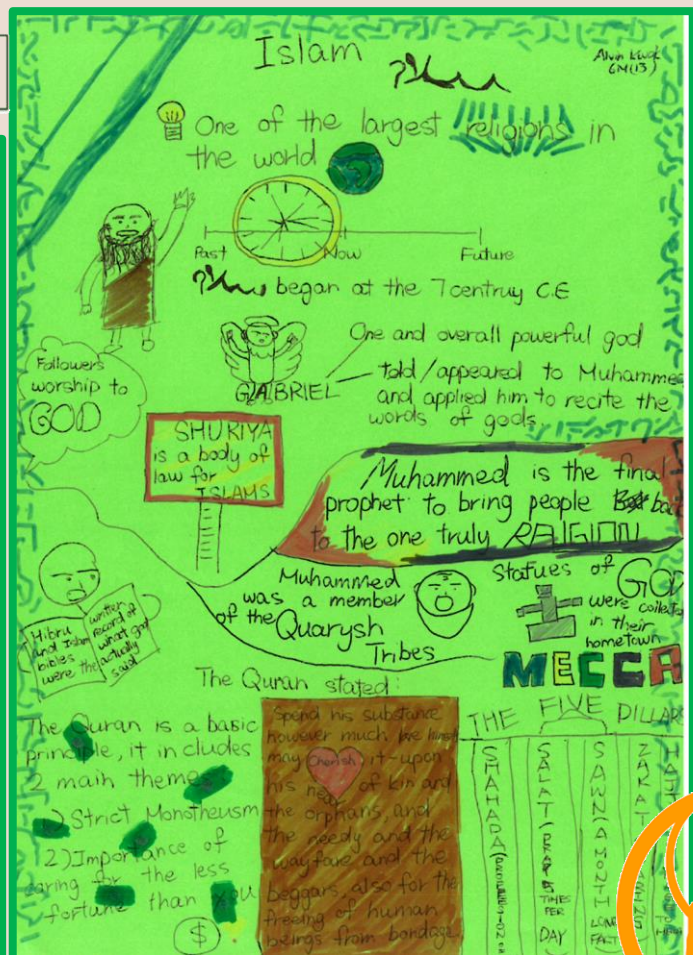 Islam
Alvin
6M(13)
One of the largest religions in
the world
Past Now Future
began at the 7centruy C.E
One and overall powerful god
GABRIEL
told/appeared to Muhammed
and applied him to recite the
words of gods
Followers
worship to
GOD
SHURIYA
is a body of
law for
ISLAMS
Muhammed is the final
prophet to bring people
to the one truly RELIGION
Muhammed
was a member
of the Quarysh
Tribes
Statues of GOD
were
in their
hometown
MECCA
Hibru
and Islam
bibles
were the
written
record of
what god
actually
said
The Quran stated:
The Quran is a basic
principle, it includes
2 main themes
1) Strict Monotheusm
2) Importance of
caring for the less
fortune than you
$
Spend his substance
however much he himself
may cherish, it-upon
his near of kin and
the orphans, and
the needy and the
wayfare and the
beggars, also for the
freeing of human
beings from bondage
THE FIVE PILLARS
SHAHADA
SALAT (PRAY 5 TIMES PER DAY
SAWN (A MONTH LONG FAST)
ZAKAT
HAJJ